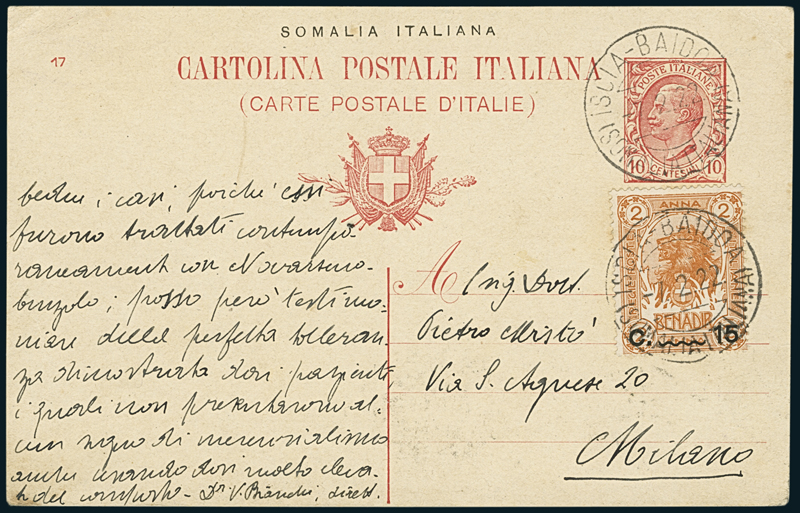 SOMALIA ITALIANA
17
CARTOLINA POSTALE ITALIANA
(CARTE POSTALE D'ITALIE)
ISCIA-BAIDOA
POSTE ITALIANE
10 CENTESIMI 10
2 ANNA 2
BENADIR
C. 15
BAIDOA
2 22
i casi, poiché essi
furono trattati contempo-
raneament con Novarseno-
benzolo; posso però testimo-
niare della perfetta tolleran-
za dimostrata dai pazienti
i quali non presentarono al-
cun segno di mercurialismo
anche usando dosi molto eleva-
te del composto - Dr V. Bianchi, dirett.
A Ing. Dott.
Pietro
Via S. Agnese 20
Milano